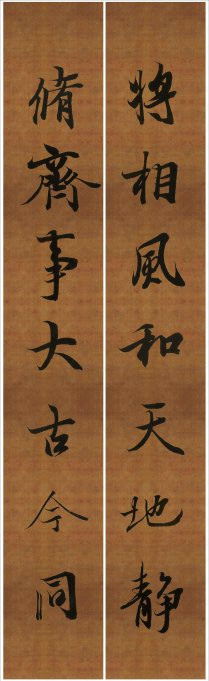 将相風和天地静
脩齊事大古今同